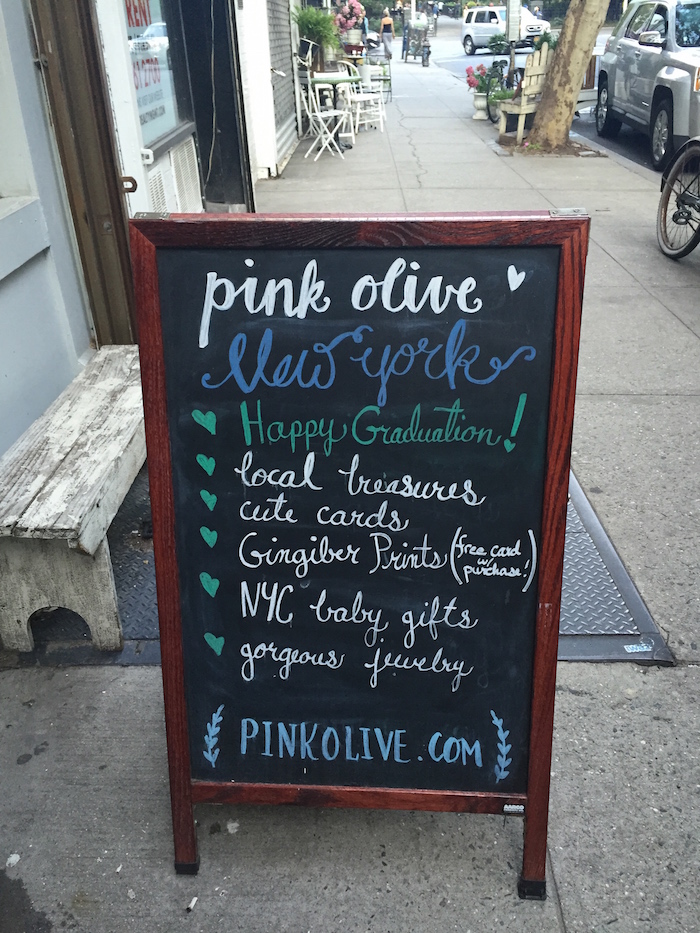 RENT
pink olive
New york
Happy Graduation!
local treasures
cute cards
Gingiber Prints (free card w/ purchase!)
NYC baby gifts
gorgeous jewelry
PINKOLIVE.COM